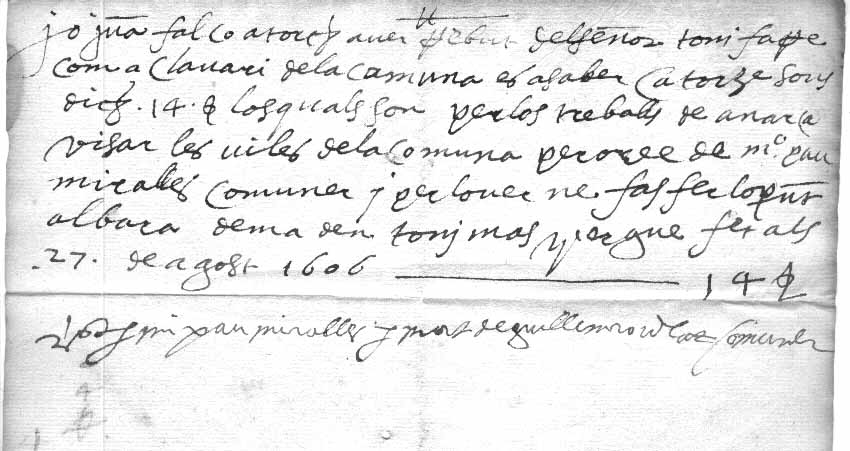 jo juā falco atorch aver rebut del señor toni fa
com a clavari de la comuna es a saber catorze sous
dich .14. los quals son per los treballs de anar a
visar les viles de la comuna per orde de mº. pau
miralles comuner y per lo ver ne fas fer lo pñt
albara de ma den toni mas y per que fet als
.27. de agost 1606 14
mi pau miralles y de guillem comuner